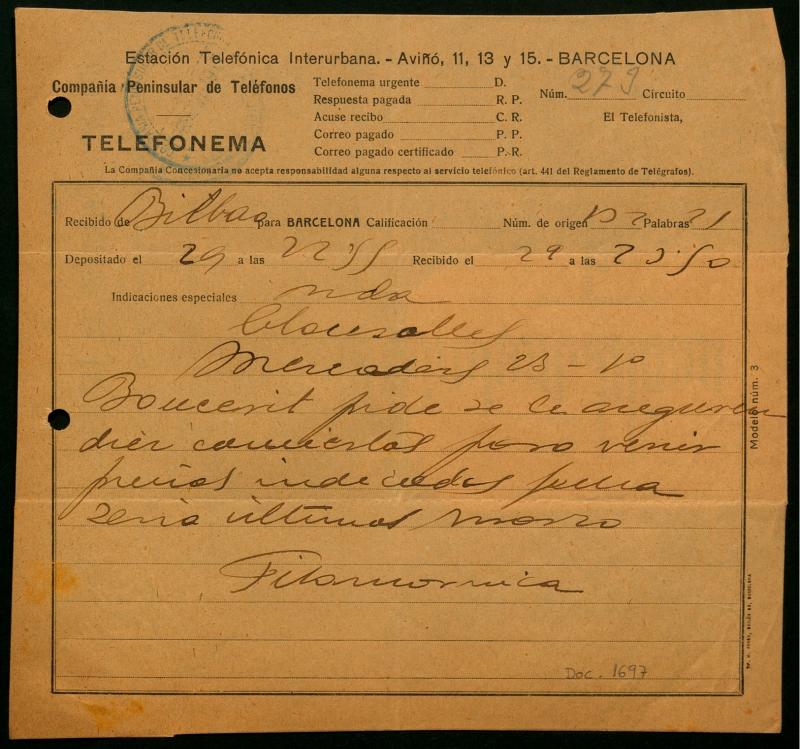 Estación Telefónica Interurbana. - Aviñó, 11, 13 y 15. - BARCELONA
Compañía Peninsular de Teléfonos
TELEFONEMA
Telefonema urgente D.
Respuesta pagada R. P.
Acuse recibo C. R.
Correo pagado P. P.
Correo pagado certificado P.-R.
Núm. 279 Circuito
El Telefonista,
La Compañía Concesionaria no acepta responsabilidad alguna respecto al servicio telefónico (art. 441 del Reglamento de Telégrafos).
Recibido de Bilbao para BARCELONA Calificación Núm. de origen Palabras 21
Depositado el 29 a las 22'55 Recibido el 29 a las 23'50
Indicaciones especiales
Clausolles
Mercaders 23 - 1º
Boucerit pide se le aseguren
diez conciertos para venir
precios indicados fecha
seria ultimos marzo
Filarmonica
Modelo núm. 3
Doc. 1697